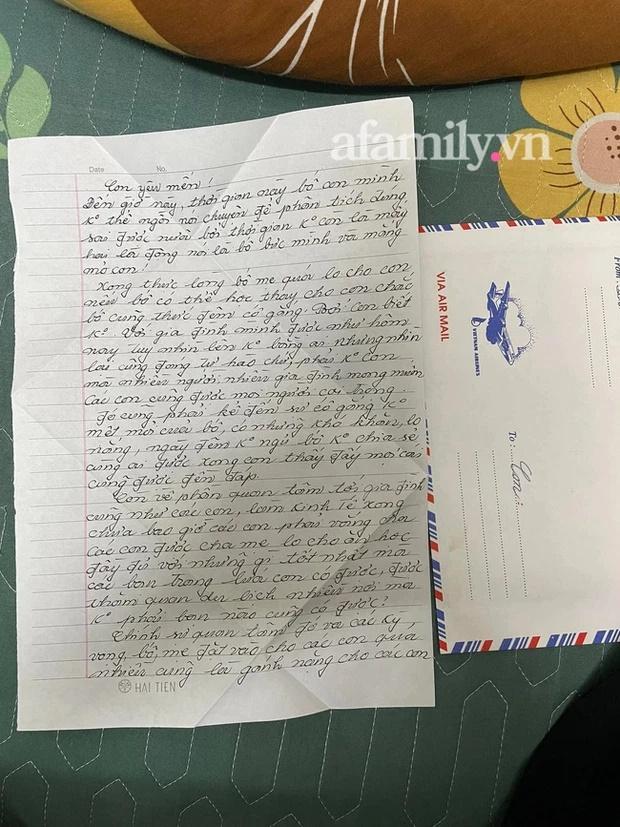 afamily.vn
Date No.
Con yêu mến!
Đến giờ này, thời gian này bố con mình
K° thể ngồi nói chuyện để phân tích đúng
sai được nữa bởi thời gian K° còn là mấy
hai là động nói là bố bực mình và mắng
mỏ con!
Xong thực lòng bố mẹ quá lo cho con
nếu bố có thể học thay cho con chắc
bố cũng thức đêm cố gắng. Bởi con biết
K°. Với gia đình mình được như hôm
nay tuy nhìn lên K° bằng ai nhưng nhìn
lại cũng đáng tự hào chứ, phải K° con.
mà nhiều người nhiều gia đình mong muốn
các con cũng được mọi người coi trọng.
Đó cũng phải kể đến sự cố gắng K°
mệt mỏi của bố, có những khó khăn, lo
nắng, ngày đêm K° ngủ bố K° chia sẻ
cùng ai được xong con thấy đấy mọi cái
cũng được đền đáp.
Còn về phần quan tâm tới gia đình
cũng như các con, làm kinh tế xong
chưa bao giờ các con phải vắng cha
các con được cha mẹ lo cho ăn học
đầy đủ với những gì tốt nhất mà
các bạn trang lứa con có được, được
thăm quan du lịch nhiều nơi mà
K° phải bạn nào cũng có được!
Chính sự quan tâm đó và các kỳ
vọng bố, mẹ đặt vào cho các con quá
nhiều cũng là gánh nặng cho các con
HẢI TIẾN
VIA AIR MAIL
VIETNAM AIRLINES
From:
To: Con: